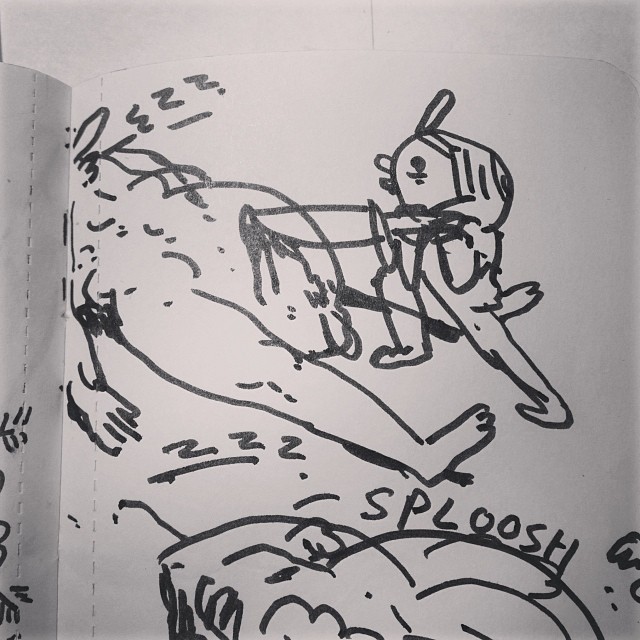 zzz
zzz
SPLOOSH